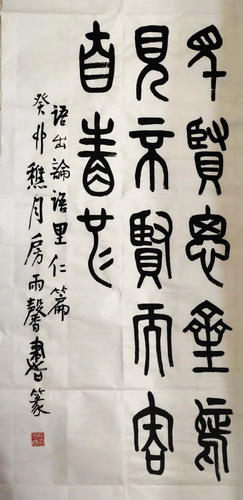 見賢思齊焉
見不賢而內
自省也
語出論語里仁篇
癸卯穐月房雨馨書篆